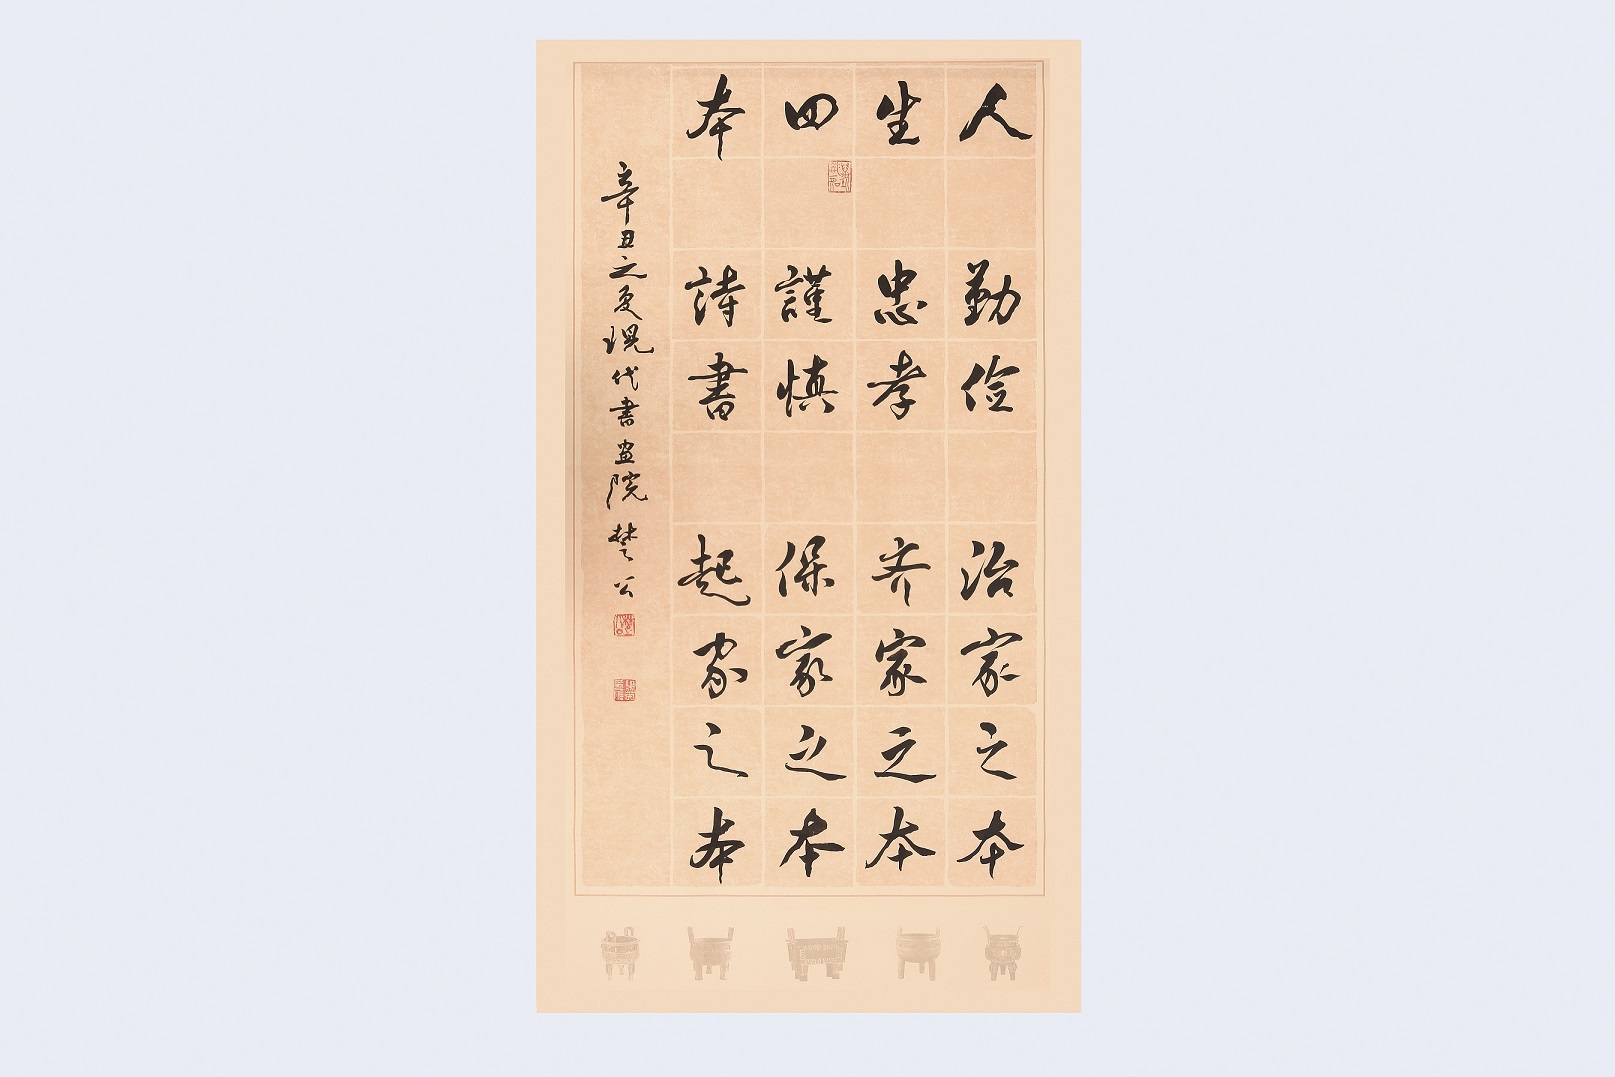 人生四本
勤俭治家之本
忠孝齐家之本
謹慎保家之本
詩書起家之本
辛丑之夏現代書画院楚公